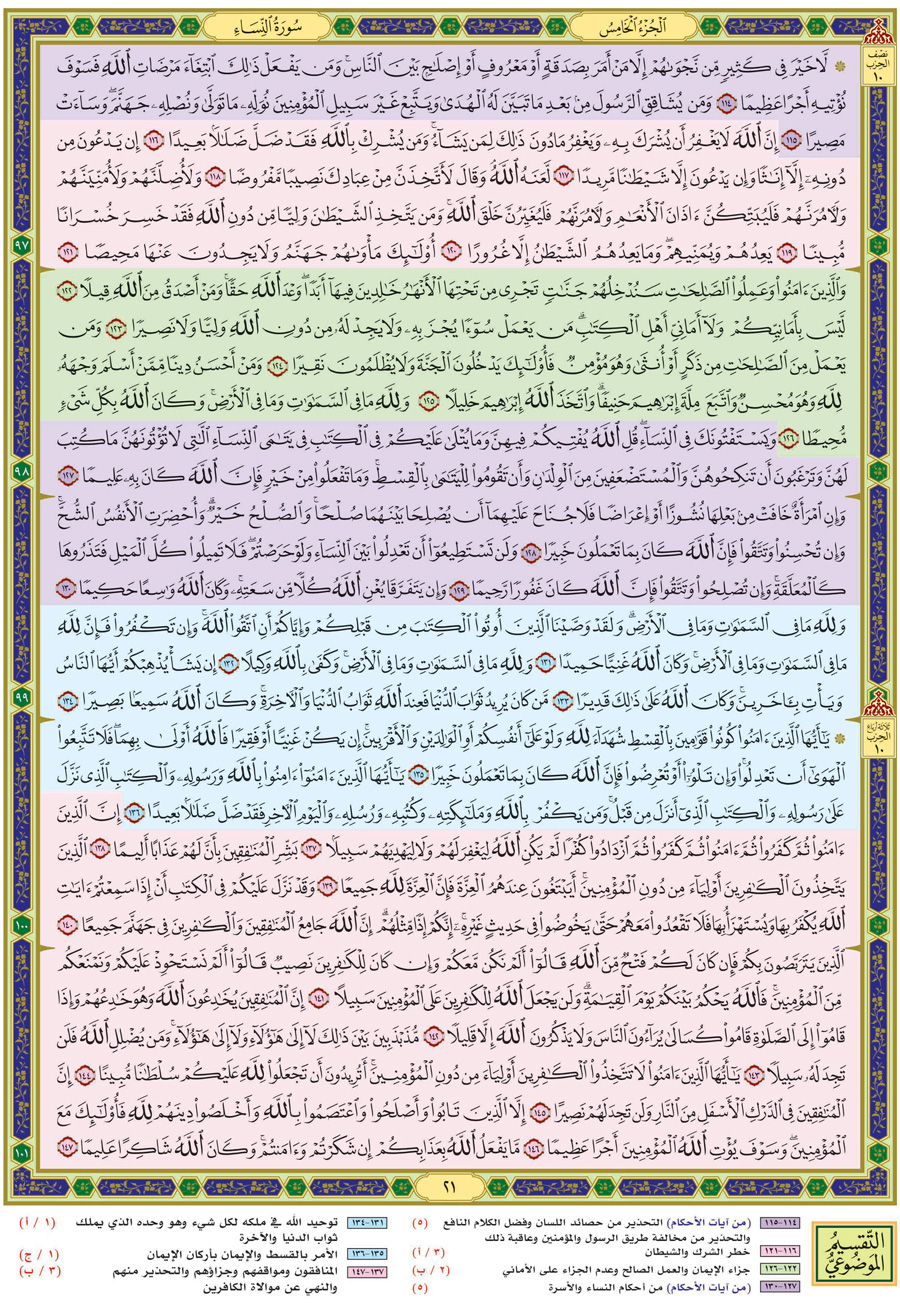 سُورَةُ النِّسَاءِ
الْجُزْءُ الْخَامِسُ
نصف الحزب ١٠
۞ لَّا خَيْرَ فِي كَثِيرٍ مِّن نَّجْوَىٰهُمْ إِلَّا مَنْ أَمَرَ بِصَدَقَةٍ أَوْ مَعْرُوفٍ أَوْ إِصْلَٰحٍۭ بَيْنَ النَّاسِ ۚ وَمَن يَفْعَلْ ذَٰلِكَ ابْتِغَآءَ مَرْضَاتِ اللَّهِ فَسَوْفَ
نُؤْتِيهِ أَجْرًا عَظِيمًا ١١٤ وَمَن يُشَاقِقِ الرَّسُولَ مِنۢ بَعْدِ مَا تَبَيَّنَ لَهُ الْهُدَىٰ وَيَتَّبِعْ غَيْرَ سَبِيلِ الْمُؤْمِنِينَ نُوَلِّهِۦ مَا تَوَلَّىٰ وَنُصْلِهِۦ جَهَنَّمَ ۖ وَسَآءَتْ
مَصِيرًا ١١٥ إِنَّ اللَّهَ لَا يَغْفِرُ أَن يُشْرَكَ بِهِۦ وَيَغْفِرُ مَا دُونَ ذَٰلِكَ لِمَن يَشَآءُ ۚ وَمَن يُشْرِكْ بِاللَّهِ فَقَدْ ضَلَّ ضَلَٰلًۢا بَعِيدًا ١١٦ إِن يَدْعُونَ مِن
دُونِهِۦٓ إِلَّآ إِنَٰثًا وَإِن يَدْعُونَ إِلَّا شَيْطَٰنًا مَّرِيدًا ١١٧ لَّعَنَهُ اللَّهُ ۘ وَقَالَ لَأَتَّخِذَنَّ مِنْ عِبَادِكَ نَصِيبًا مَّفْرُوضًا ١١٨ وَلَأُضِلَّنَّهُمْ وَلَأُمَنِّيَنَّهُمْ
وَلَءَامُرَنَّهُمْ فَلَيُبَتِّكُنَّ ءَاذَانَ الْأَنْعَٰمِ وَلَءَامُرَنَّهُمْ فَلَيُغَيِّرُنَّ خَلْقَ اللَّهِ ۚ وَمَن يَتَّخِذِ الشَّيْطَٰنَ وَلِيًّا مِّن دُونِ اللَّهِ فَقَدْ خَسِرَ خُسْرَانًا
مُّبِينًا ١١٩ يَعِدُهُمْ وَيُمَنِّيهِمْ ۖ وَمَا يَعِدُهُمُ الشَّيْطَٰنُ إِلَّا غُرُورًا ١٢٠ أُو۟لَٰٓئِكَ مَأْوَىٰهُمْ جَهَنَّمُ وَلَا يَجِدُونَ عَنْهَا مَحِيصًا ١٢١
٩٧
وَالَّذِينَ ءَامَنُوا۟ وَعَمِلُوا۟ الصَّٰلِحَٰتِ سَنُدْخِلُهُمْ جَنَّٰتٍ تَجْرِي مِن تَحْتِهَا الْأَنْهَٰرُ خَٰلِدِينَ فِيهَآ أَبَدًا ۖ وَعْدَ اللَّهِ حَقًّا ۚ وَمَنْ أَصْدَقُ مِنَ اللَّهِ قِيلًا ١٢٢
لَّيْسَ بِأَمَانِيِّكُمْ وَلَآ أَمَانِيِّ أَهْلِ الْكِتَٰبِ ۗ مَن يَعْمَلْ سُوٓءًا يُجْزَ بِهِۦ وَلَا يَجِدْ لَهُۥ مِن دُونِ اللَّهِ وَلِيًّا وَلَا نَصِيرًا ١٢٣ وَمَن
يَعْمَلْ مِنَ الصَّٰلِحَٰتِ مِن ذَكَرٍ أَوْ أُنثَىٰ وَهُوَ مُؤْمِنٌ فَأُو۟لَٰٓئِكَ يَدْخُلُونَ الْجَنَّةَ وَلَا يُظْلَمُونَ نَقِيرًا ١٢٤ وَمَنْ أَحْسَنُ دِينًا مِّمَّنْ أَسْلَمَ وَجْهَهُۥ
لِلَّهِ وَهُوَ مُحْسِنٌ وَاتَّبَعَ مِلَّةَ إِبْرَٰهِيمَ حَنِيفًا ۗ وَاتَّخَذَ اللَّهُ إِبْرَٰهِيمَ خَلِيلًا ١٢٥ وَلِلَّهِ مَا فِي السَّمَٰوَٰتِ وَمَا فِي الْأَرْضِ ۚ وَكَانَ اللَّهُ بِكُلِّ شَيْءٍ
مُّحِيطًا ١٢٦ وَيَسْتَفْتُونَكَ فِي النِّسَآءِ ۖ قُلِ اللَّهُ يُفْتِيكُمْ فِيهِنَّ وَمَا يُتْلَىٰ عَلَيْكُمْ فِي الْكِتَٰبِ فِي يَتَٰمَى النِّسَآءِ الَّٰتِي لَا تُؤْتُونَهُنَّ مَا كُتِبَ
لَهُنَّ وَتَرْغَبُونَ أَن تَنكِحُوهُنَّ وَالْمُسْتَضْعَفِينَ مِنَ الْوِلْدَٰنِ وَأَن تَقُومُوا۟ لِلْيَتَٰمَىٰ بِالْقِسْطِ ۚ وَمَا تَفْعَلُوا۟ مِنْ خَيْرٍ فَإِنَّ اللَّهَ كَانَ بِهِۦ عَلِيمًا ١٢٧
٩٨
وَإِنِ امْرَأَةٌ خَافَتْ مِنۢ بَعْلِهَا نُشُوزًا أَوْ إِعْرَاضًا فَلَا جُنَاحَ عَلَيْهِمَآ أَن يُصْلِحَا بَيْنَهُمَا صُلْحًا ۚ وَالصُّلْحُ خَيْرٌ ۗ وَأُحْضِرَتِ الْأَنفُسُ الشُّحَّ ۚ
وَإِن تُحْسِنُوا۟ وَتَتَّقُوا۟ فَإِنَّ اللَّهَ كَانَ بِمَا تَعْمَلُونَ خَبِيرًا ١٢٨ وَلَن تَسْتَطِيعُوٓا۟ أَن تَعْدِلُوا۟ بَيْنَ النِّسَآءِ وَلَوْ حَرَصْتُمْ ۖ فَلَا تَمِيلُوا۟ كُلَّ الْمَيْلِ فَتَذَرُوهَا
كَالْمُعَلَّقَةِ ۚ وَإِن تُصْلِحُوا۟ وَتَتَّقُوا۟ فَإِنَّ اللَّهَ كَانَ غَفُورًا رَّحِيمًا ١٢٩ وَإِن يَتَفَرَّقَا يُغْنِ اللَّهُ كُلًّا مِّن سَعَتِهِۦ ۚ وَكَانَ اللَّهُ وَٰسِعًا حَكِيمًا ١٣٠
وَلِلَّهِ مَا فِي السَّمَٰوَٰتِ وَمَا فِي الْأَرْضِ ۗ وَلَقَدْ وَصَّيْنَا الَّذِينَ أُوتُوا۟ الْكِتَٰبَ مِن قَبْلِكُمْ وَإِيَّاكُمْ أَنِ اتَّقُوا۟ اللَّهَ ۚ وَإِن تَكْفُرُوا۟ فَإِنَّ لِلَّهِ
مَا فِي السَّمَٰوَٰتِ وَمَا فِي الْأَرْضِ ۚ وَكَانَ اللَّهُ غَنِيًّا حَمِيدًا ١٣١ وَلِلَّهِ مَا فِي السَّمَٰوَٰتِ وَمَا فِي الْأَرْضِ ۚ وَكَفَىٰ بِاللَّهِ وَكِيلًا ١٣٢ إِن يَشَأْ يُذْهِبْكُمْ أَيُّهَا النَّاسُ
وَيَأْتِ بِـَٔاخَرِينَ ۚ وَكَانَ اللَّهُ عَلَىٰ ذَٰلِكَ قَدِيرًا ١٣٣ مَّن كَانَ يُرِيدُ ثَوَابَ الدُّنْيَا فَعِندَ اللَّهِ ثَوَابُ الدُّنْيَا وَالْءَاخِرَةِ ۚ وَكَانَ اللَّهُ سَمِيعًۢا بَصِيرًا ١٣٤
٩٩
ثلاثة أرباع الحزب ١٠
۞ يَٰٓأَيُّهَا الَّذِينَ ءَامَنُوا۟ كُونُوا۟ قَوَّٰمِينَ بِالْقِسْطِ شُهَدَآءَ لِلَّهِ وَلَوْ عَلَىٰٓ أَنفُسِكُمْ أَوِ الْوَٰلِدَيْنِ وَالْأَقْرَبِينَ ۚ إِن يَكُنْ غَنِيًّا أَوْ فَقِيرًا فَاللَّهُ أَوْلَىٰ بِهِمَا ۖ فَلَا تَتَّبِعُوا۟
الْهَوَىٰٓ أَن تَعْدِلُوا۟ ۚ وَإِن تَلْوُۥٓا۟ أَوْ تُعْرِضُوا۟ فَإِنَّ اللَّهَ كَانَ بِمَا تَعْمَلُونَ خَبِيرًا ١٣٥ يَٰٓأَيُّهَا الَّذِينَ ءَامَنُوٓا۟ ءَامِنُوا۟ بِاللَّهِ وَرَسُولِهِۦ وَالْكِتَٰبِ الَّذِي نَزَّلَ
عَلَىٰ رَسُولِهِۦ وَالْكِتَٰبِ الَّذِيٓ أَنزَلَ مِن قَبْلُ ۚ وَمَن يَكْفُرْ بِاللَّهِ وَمَلَٰٓئِكَتِهِۦ وَكُتُبِهِۦ وَرُسُلِهِۦ وَالْيَوْمِ الْءَاخِرِ فَقَدْ ضَلَّ ضَلَٰلًۢا بَعِيدًا ١٣٦ إِنَّ الَّذِينَ
ءَامَنُوا۟ ثُمَّ كَفَرُوا۟ ثُمَّ ءَامَنُوا۟ ثُمَّ كَفَرُوا۟ ثُمَّ ازْدَادُوا۟ كُفْرًا لَّمْ يَكُنِ اللَّهُ لِيَغْفِرَ لَهُمْ وَلَا لِيَهْدِيَهُمْ سَبِيلًۢا ١٣٧ بَشِّرِ الْمُنَٰفِقِينَ بِأَنَّ لَهُمْ عَذَابًا أَلِيمًا ١٣٨ الَّذِينَ
يَتَّخِذُونَ الْكَٰفِرِينَ أَوْلِيَآءَ مِن دُونِ الْمُؤْمِنِينَ ۚ أَيَبْتَغُونَ عِندَهُمُ الْعِزَّةَ فَإِنَّ الْعِزَّةَ لِلَّهِ جَمِيعًا ١٣٩ وَقَدْ نَزَّلَ عَلَيْكُمْ فِي الْكِتَٰبِ أَنْ إِذَا سَمِعْتُمْ ءَايَٰتِ
اللَّهِ يُكْفَرُ بِهَا وَيُسْتَهْزَأُ بِهَا فَلَا تَقْعُدُوا۟ مَعَهُمْ حَتَّىٰ يَخُوضُوا۟ فِي حَدِيثٍ غَيْرِهِۦٓ ۚ إِنَّكُمْ إِذًا مِّثْلُهُمْ ۗ إِنَّ اللَّهَ جَامِعُ الْمُنَٰفِقِينَ وَالْكَٰفِرِينَ فِي جَهَنَّمَ جَمِيعًا ١٤٠
١٠٠
الَّذِينَ يَتَرَبَّصُونَ بِكُمْ فَإِن كَانَ لَكُمْ فَتْحٌ مِّنَ اللَّهِ قَالُوٓا۟ أَلَمْ نَكُن مَّعَكُمْ وَإِن كَانَ لِلْكَٰفِرِينَ نَصِيبٌ قَالُوٓا۟ أَلَمْ نَسْتَحْوِذْ عَلَيْكُمْ وَنَمْنَعْكُم
مِّنَ الْمُؤْمِنِينَ ۚ فَاللَّهُ يَحْكُمُ بَيْنَكُمْ يَوْمَ الْقِيَٰمَةِ ۗ وَلَن يَجْعَلَ اللَّهُ لِلْكَٰفِرِينَ عَلَى الْمُؤْمِنِينَ سَبِيلًا ١٤١ إِنَّ الْمُنَٰفِقِينَ يُخَٰدِعُونَ اللَّهَ وَهُوَ خَٰدِعُهُمْ وَإِذَا
قَامُوٓا۟ إِلَى الصَّلَوٰةِ قَامُوا۟ كُسَالَىٰ يُرَآءُونَ النَّاسَ وَلَا يَذْكُرُونَ اللَّهَ إِلَّا قَلِيلًا ١٤٢ مُّذَبْذَبِينَ بَيْنَ ذَٰلِكَ لَآ إِلَىٰ هَٰٓؤُلَآءِ وَلَآ إِلَىٰ هَٰٓؤُلَآءِ ۚ وَمَن يُضْلِلِ اللَّهُ فَلَن
تَجِدَ لَهُۥ سَبِيلًا ١٤٣ يَٰٓأَيُّهَا الَّذِينَ ءَامَنُوا۟ لَا تَتَّخِذُوا۟ الْكَٰفِرِينَ أَوْلِيَآءَ مِن دُونِ الْمُؤْمِنِينَ ۚ أَتُرِيدُونَ أَن تَجْعَلُوا۟ لِلَّهِ عَلَيْكُمْ سُلْطَٰنًا مُّبِينًا ١٤٤ إِنَّ
الْمُنَٰفِقِينَ فِي الدَّرْكِ الْأَسْفَلِ مِنَ النَّارِ وَلَن تَجِدَ لَهُمْ نَصِيرًا ١٤٥ إِلَّا الَّذِينَ تَابُوا۟ وَأَصْلَحُوا۟ وَاعْتَصَمُوا۟ بِاللَّهِ وَأَخْلَصُوا۟ دِينَهُمْ لِلَّهِ فَأُو۟لَٰٓئِكَ مَعَ
الْمُؤْمِنِينَ ۖ وَسَوْفَ يُؤْتِ اللَّهُ الْمُؤْمِنِينَ أَجْرًا عَظِيمًا ١٤٦ مَّا يَفْعَلُ اللَّهُ بِعَذَابِكُمْ إِن شَكَرْتُمْ وَءَامَنتُمْ ۚ وَكَانَ اللَّهُ شَاكِرًا عَلِيمًا ١٤٧
١٠١
٢١
التقسيم الموضوعي
١١٤-١١٥ (من آيات الأحكام) التحذير من حصائد اللسان وفضل الكلام النافع (٥)
والتحذير من مخالفة طريق الرسول والمؤمنين وعاقبة ذلك
١١٦-١٢١ خطر الشرك والشيطان (٣ / أ)
١٢٢-١٢٦ جزاء الإيمان والعمل الصالح وعدم الجزاء على الأماني (٢ / ب)
١٢٧-١٣٠ (من آيات الأحكام) من أحكام النساء والأسرة (٥)
١٣١-١٣٤ توحيد الله في ملكه لكل شيء وهو وحده الذي يملك (١ / أ)
ثواب الدنيا والآخرة
١٣٥-١٣٦ الأمر بالقسط والإيمان بأركان الإيمان (١ / ج)
١٣٧-١٤٧ المنافقون ومواقفهم وجزاؤهم والتحذير منهم (٣ / ب)
والنهي عن موالاة الكافرين